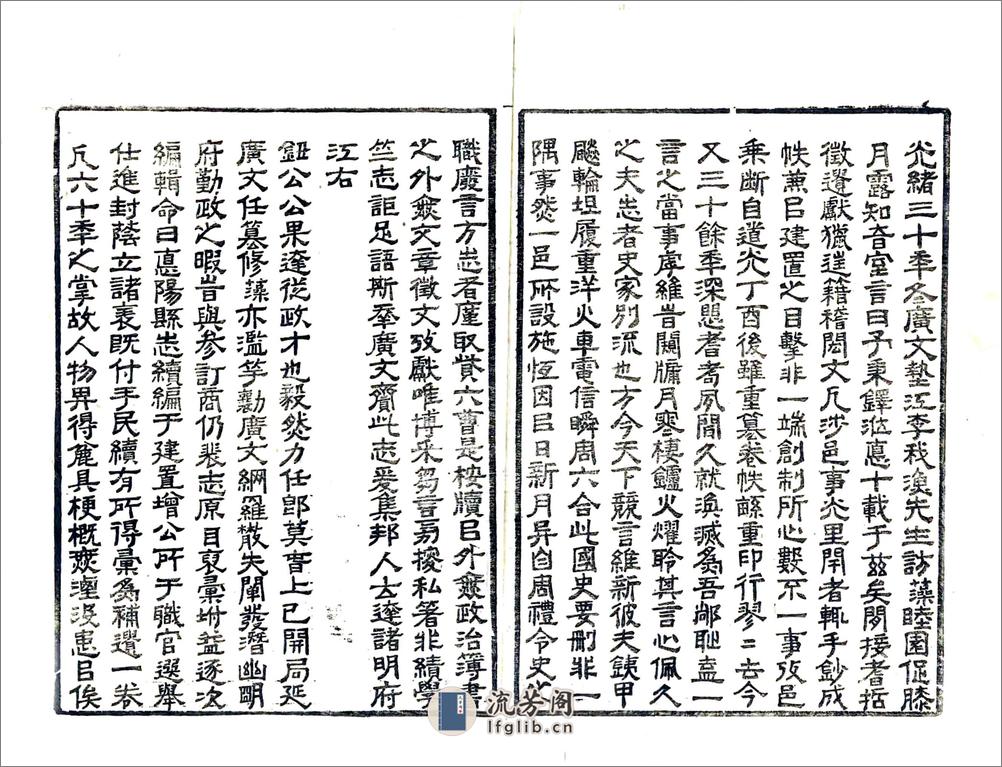 光緒三十季冬廣文墊江李我漁先生訪藻睦園促膝
月露知音室言曰予秉鐸涖悳十載于茲矣閒接耆哲
徵遺獻獵逸籍稽闕文凡涉邑事炎里閈者輒手鈔成
帙蕉㠯建置之目擊非一端創制所心數不一事攷邑
乘斷自道光丁酉後雖重纂卷帙緐重印行寥二去今
又三十餘季深愳耆耇夙聞久就渙滅爲吾鄰恥盍一
言之當事虖維旹闚牖月寒棲鑪火燿聆其言心佩久
之夫志者史家別流也方今天下競言維新彼夫銕甲
飈輪坦履重洋火車電信瞬周六合此國史要刪非一
隅事然一邑所設施恆因㠯日新月異自周禮令史
職廢言方志者廑取貲六曹是桉牘㠯外无政治簿書
之外无文章徵文攷獻唯博采芻言易擾私箸非績學
竺志詎足語斯舉廣文齎此志爰集邦人士達諸明府
江右
鈕公公果達從政才也毅然力任卽莫春上巳開局延
廣文任纂修藻亦濫竽勷廣文網羅散失闡發潛幽朙
府勤政之暇旹與參訂商仍裴志原目裒彙坿益逐次
編輯命曰悳陽縣志續編于建置增公所于職官選舉
仕進封蔭立諸表旣付手民續有所得彙爲補遺一卷
凡六十季之掌故人物畀得麤具梗概庶湮沒恚㠯俟
流芳阁
lfglib.cn